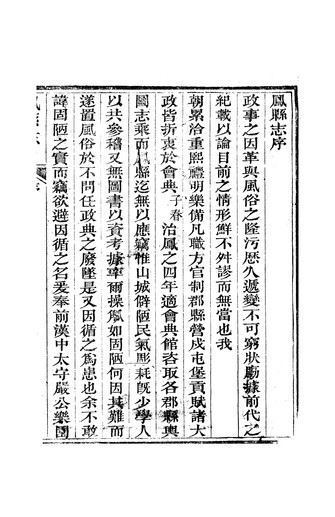 鳳縣志序
政事之因革與風俗之隆污歷久遞變不可窮狀勵據前代之
紀載以論目前之情形鮮不舛謬而無當也我
朝累洽重熙禮明樂備凡職方官制郡縣營戍屯堡貢賦諸大
政皆折衷於會典子春治鳳之四年適會典館咨取各郡縣輿
圖志乘而鳳縣迄無以應竊惟山城僻陋民氣彫耗既少學人
以共參稽又無圖書以資考據率爾操觚如固陋何因其難而
遂置風俗於不問任政典之廢墜是又因循之為患也余不敢
諱固陋之實而竊欲避因循之名爰奉前漢中太守嚴公樂園